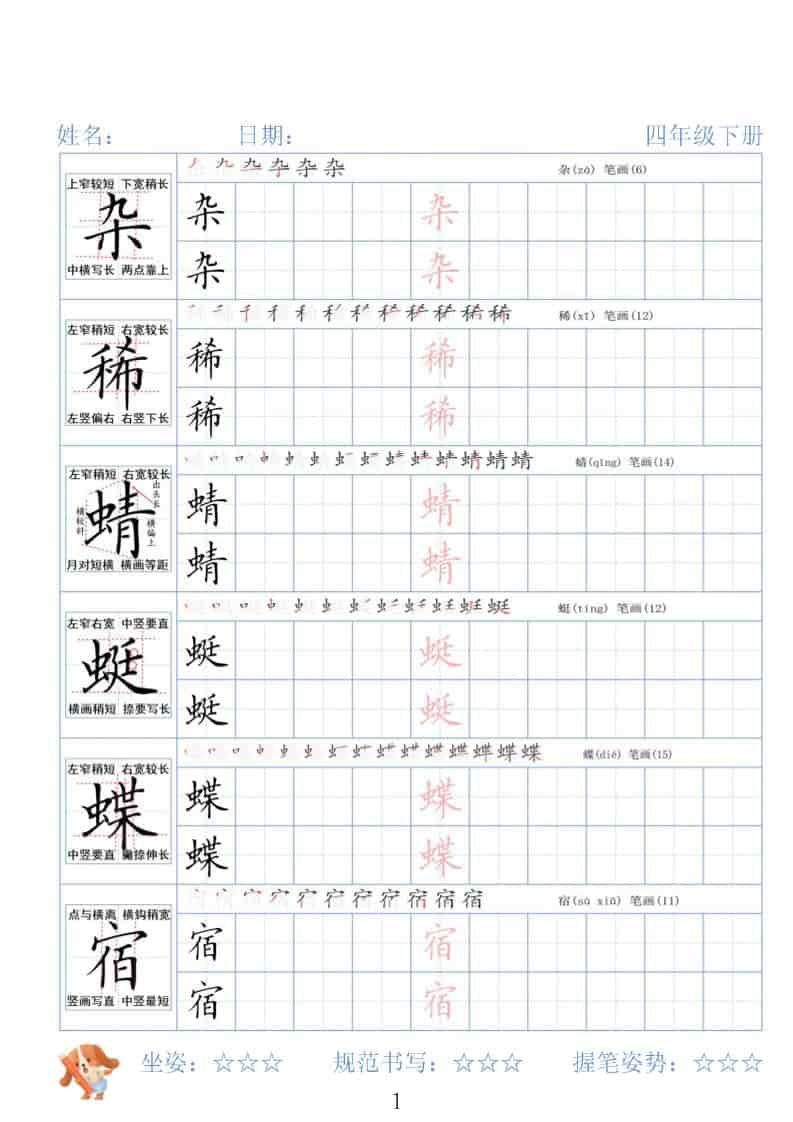 姓名： 日期： 四年级下册
杂(zá) 笔画(6)
上窄较短 下宽稍长
杂
中横写长 两点靠上
杂 杂
杂 杂
稀(xī) 笔画(12)
左窄稍短 右宽较长
稀
左竖偏右 右竖下长
稀 稀
稀 稀
蜻(qīng) 笔画(14)
左窄稍短 右宽较长
出头长
蜻
横较斜
横偏上
月对短横 横画等距
蜻 蜻
蜻 蜻
蜓(tíng) 笔画(12)
左窄右宽 中竖要直
蜓
横画稍短 捺要写长
蜓 蜓
蜓 蜓
蝶(dié) 笔画(15)
左窄稍短 右宽较长
蝶
中竖要直 撇捺伸长
蝶 蝶
蝶 蝶
宿(sù xiǔ) 笔画(11)
点与横离 横钩稍宽
宿
竖画写直 中竖最短
宿 宿
宿 宿
坐姿：☆☆☆ 规范书写：☆☆☆ 握笔姿势：☆☆☆
1